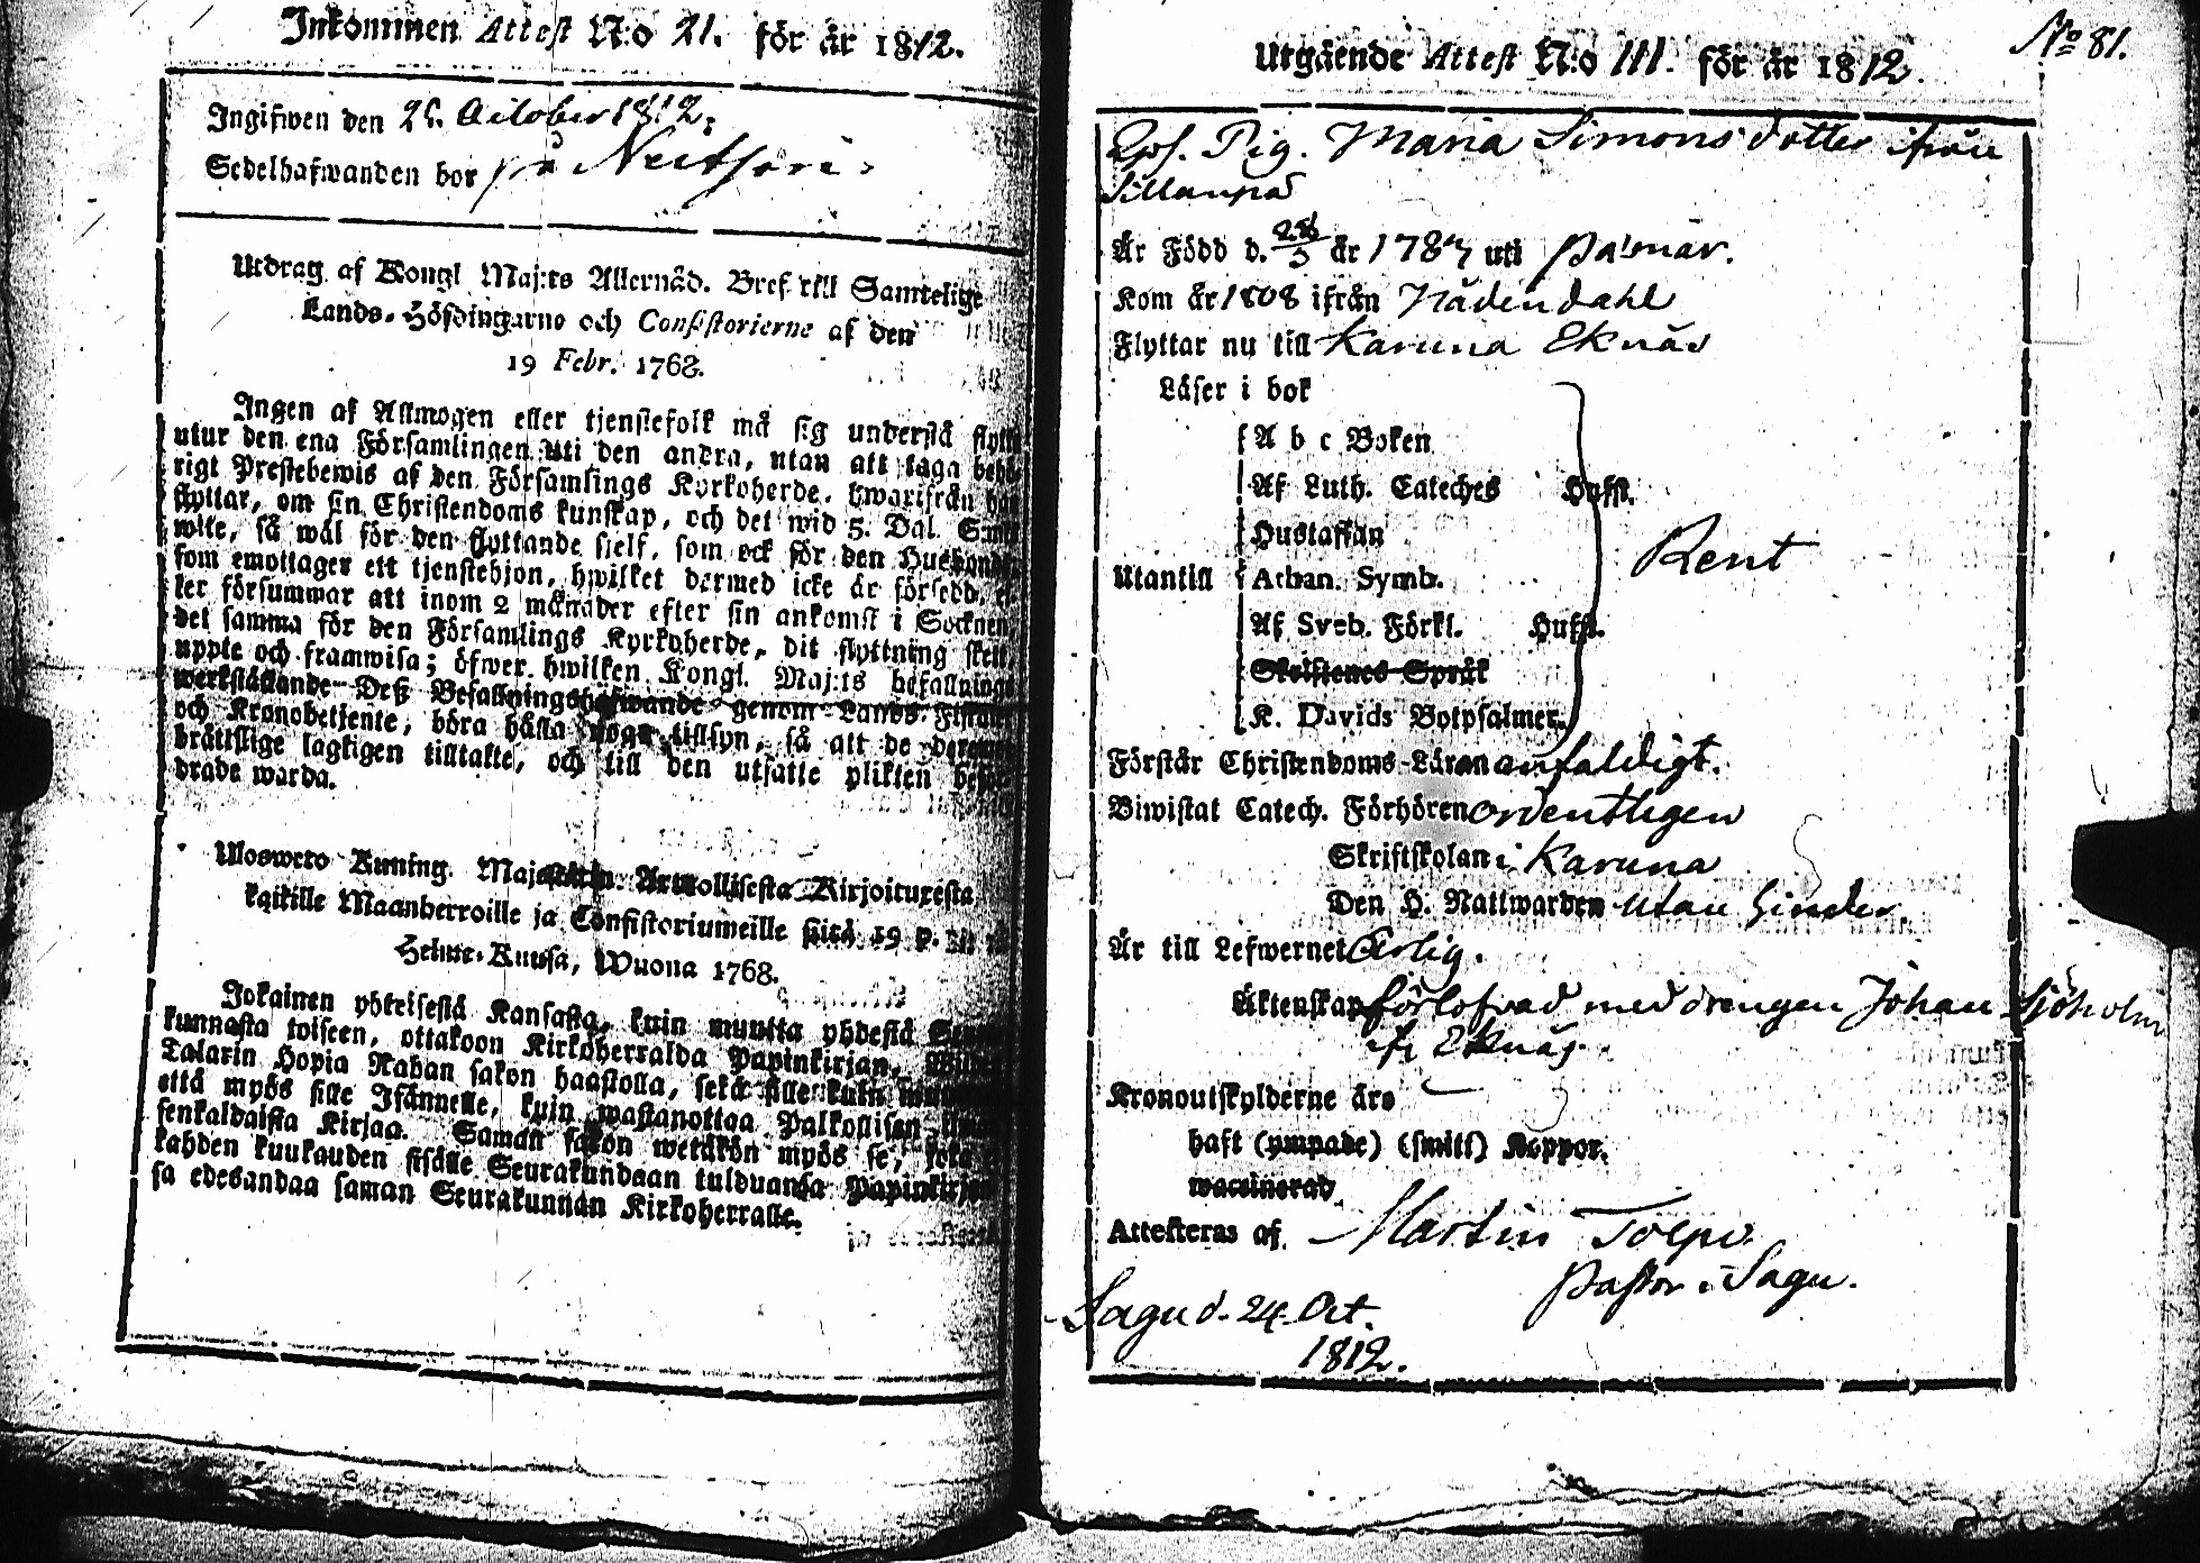 Inkommen Attest N:o 21. för år 1812.
Ingifwen den 25. October 1812.
Sedelhafwanden bor på
Utdrag af Kongl Maj:ts Allernåd. Bref till Samtelige
Lands-Höfdingarne och Consistorierne af den
19 Febr. 1768.
Ingen af Allmogen eller tjenstefolk må sig understå flytta
utur den ena Församlingen uti den andra, utan att taga behö-
rigt Prestebewis af den Församlings Kyrkoherde, hwarifrån han
flyttar, om sin Christendoms kunskap, och det wid 5. Dal. S:mts
wite, så wäl för den flyttande sjelf, som ock för den Husbonde,
som emottager ett tjenstehjon, hwilket dermed icke är försedd, el-
ler försummar att inom 2 månader efter sin ankomst i Socknen,
det samma för den Församlings Kyrkoherde, dit flyttning skett,
uppte och framwisa; öfwer hwilken Kongl. Maj:ts befallnings
werkställande Deß Befallningshafwande genom Lands-Fiskaler
och Kronobetjente, böra hålla noga tillsyn, så att de deremot
bråttslige lagligen tilltalte, och till den utsatte plikten befor-
drade warda.
Uloswето Kuning. Majestetin Armollisesta Kirjoituxesta
kaikille Maanherroille ja Consistoriumeille siitä 19 p.
Helme-Kuusa, Wuona 1768.
Jokainen yhteisestä Kansasta, kuin muutta yhdestä Seura-
kunnasta toiseen, ottakoon Kirkoherralda Papinkirjan, Wiiden
Talarin Hopia Rahan sakon haastolla, sekä sille kuin muutta
että myös sille Isännelle, kuin wastanottaa Palkollisen ilman
senkaldaista Kirjaa. Saman sakon wetäkön myös se, joka
kahden kuukauden sisälle Seurakundaan tulduansa Papinkirjan-
sa edesandaa saman Seurakunnan Kirkoherralle.
Utgående Attest N:o 111. för år 1812.
No 81.
Pig. Maria Simonsdotter ifrån
Sillanpä
Är Född d. 28/3 år 1787 uti Pa'mar.
Kom år 1808 ifrån Nådendahl
Flyttar nu till Karuna Eknäs
Läser i bok
A b c Boken
Af Luth. Cateches Hufst.
Hustaflan
Utantill Athan. Symb.
Rent
Af Sveb. Förkl. Hufst.
Skriftenes Språk
K. Davids Botpsalmer.
Förstår Christendoms-Läran enfaldigt.
Biwistat Catech. Förhören ordentligen
Skriftskolan i Karuna
Den H. Nattwarden utan hinder
Är till Lefwernet Ärlig.
Äktenskap förlofvad med drengen Johan Sjöholm
ifr Eknäs.
Kronoutskylderne äro —
haft (ympade) (smitt) Koppor.
waccinerad
Attesteras af Martin Tolpo
Pastor i Sagu.
Sagu d. 24 Oct.
1812.